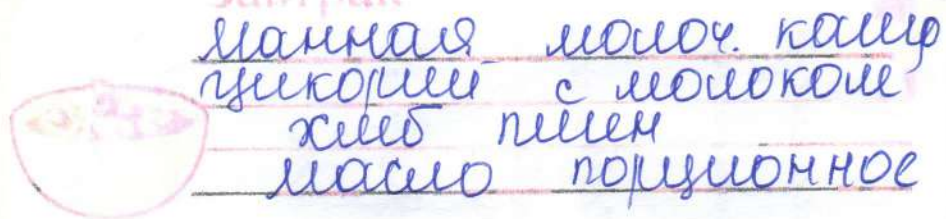 Завтрак
манная молоч. каша
цикорий с молоком
хлеб пшен
масло порционное